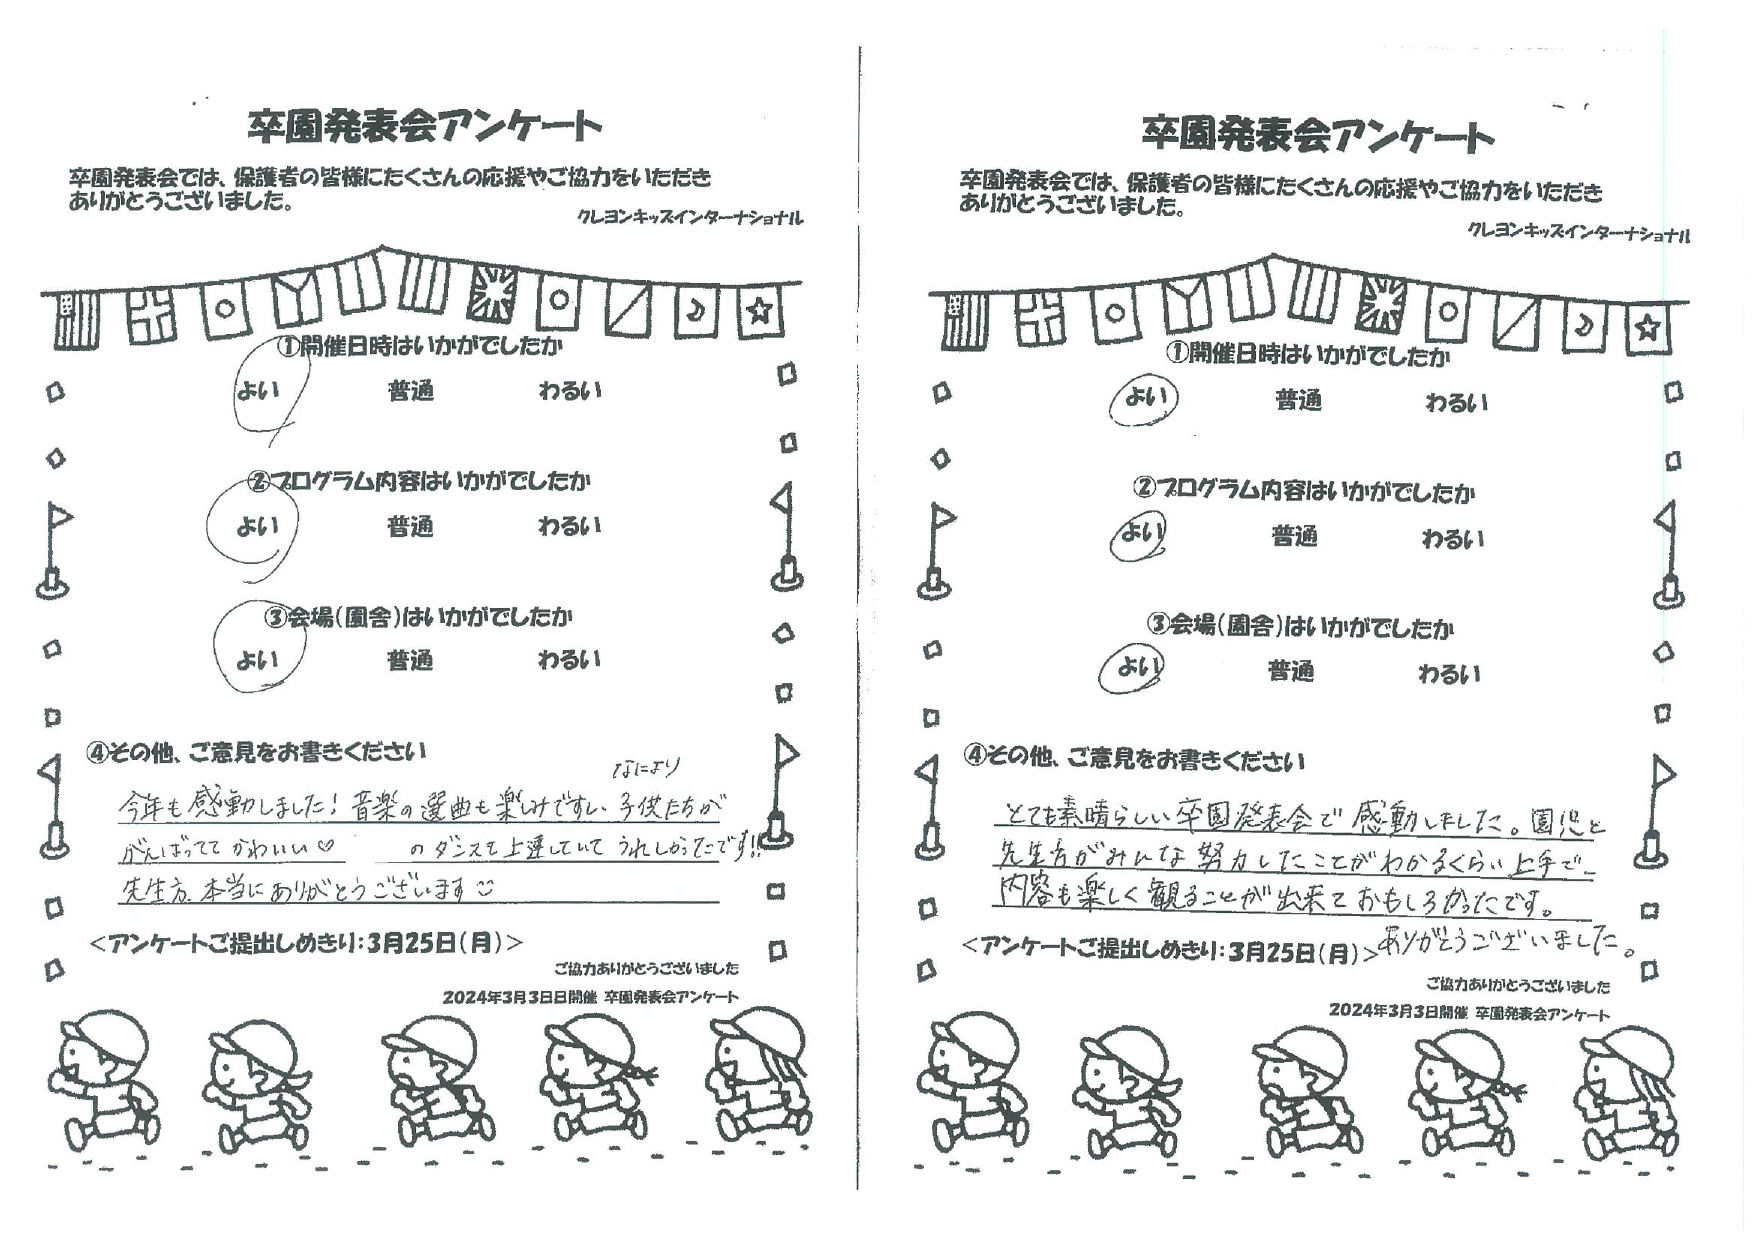 卒園発表会アンケート
卒園発表会では、保護者の皆様にたくさんの応援やご協力をいただき
ありがとうございました。
クレヨンキッズインターナショナル
①開催日時はいかがでしたか
よい 普通 わるい
②プログラム内容はいかがでしたか
よい 普通 わるい
③会場(園舎)はいかがでしたか
よい 普通 わるい
④その他、ご意見をお書きください
なにより
今年も感動しました！音楽の選曲も楽しみですし、子供たちが
がんばっててかわいい♡ のダンスも上達していてうれしかったです!!
先生方、本当にありがとうございます☺
<アンケートご提出しめきり:3月25日(月)>
ご協力ありがとうございました
2024年3月3日日開催 卒園発表会アンケート
卒園発表会アンケート
卒園発表会では、保護者の皆様にたくさんの応援やご協力をいただき
ありがとうございました。
クレヨンキッズインターナショナル
①開催日時はいかがでしたか
よい 普通 わるい
②プログラム内容はいかがでしたか
よい 普通 わるい
③会場(園舎)はいかがでしたか
よい 普通 わるい
④その他、ご意見をお書きください
とても素晴らしい卒園発表会で感動しました。園児と
先生方がみんな努力したことがわかるくらい上手で、
内容も楽しく観ることが出来ておもしろかったです。
ありがとうございました。
<アンケートご提出しめきり:3月25日(月)>
ご協力ありがとうございました
2024年3月3日開催 卒園発表会アンケート